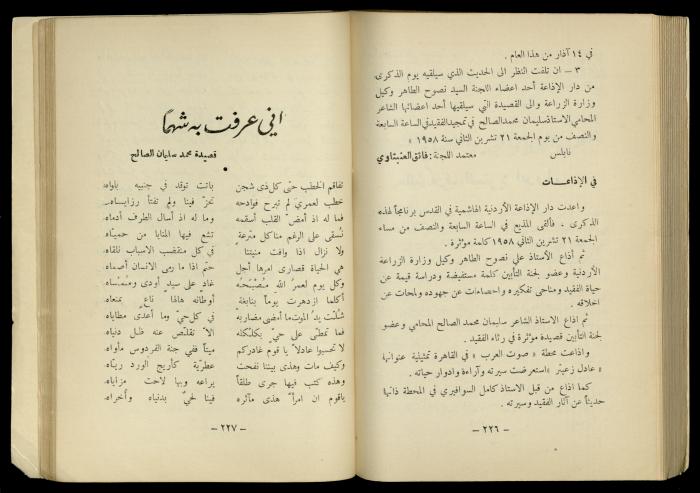 في ١٤ آذار من هذا العام .
٣ – ان تلفت النظر الى الحديث الذي سيلقيه يوم الذكرى
من دار الإذاعة أحد اعضاء اللجنة السيد نصوح الطاهر وكيل
وزارة الزراعة والى القصيدة التي سيلقيها أحد اعضائها الشاعر
المحامي الاستاذ سليمان محمد الصالح في تمجيد الفقيد في الساعة السابعة
والنصف من يوم الجمعة ٢١ تشرين الثاني سنة ١٩٥٨ »
نابلس معتمد اللجنة : فائق العنبتاوي
في الإذاعات
واعدت دار الإذاعة الأردنية الهاشمية في القدس برنامجاً لهذه
الذكرى . فألقى المذيع في الساعة السابعة والنصف من مساء
الجمعة ٢١ تشرين الثاني ١٩٥٨ كلمة مؤثرة .
ثم أذاع الأستاذ علي نصوح الطاهر وكيل وزارة الزراعة
الأردنية وعضو لجنة التأبين كلمة مستفيضة ودراسة قيمة عن
حياة الفقيد ومناحى تفكيره واحصاءات عن جهوده ولمحات عن
اخلاقه .
ثم اذاع الاستاذ الشاعر سليمان محمد الصالح المحامي وعضو
لجنة التأبين قصيدة مؤثرة في رثاء الفقيد .
واذاعت محطة « صوت العرب » في القاهرة تمثيلية عنوانها
« عادل زعيتر » استعرضت سيرته وآراءة وادوار حياته .
كما اذاع من قبل الاستاذ كامل السوافيري في المحطة ذاتها
حديثاً عن آثار الفقيد وسيرته .
– ٢٢٦ –
اني عرفت به شهماً
قصيدة محمد سليمان الصالح
تفاقم الخطب حتى كل ذي شجن باتت توقد في جنبيه بلواه
خطب لعمري لم تبرح فوادحه تحز فينا ولم تفتأ رزاياه
فما له اذ أمض القلب أسقمه وما له اذ أسال الطرف أدماه
نُسقى على الرغم منا كل مترعة تشع فيها المنايا من حمياه
ولا نزال اذا وافت منيتنا في كل منقضب الاسباب نلقاه
هي الحياة قصارى امرها أجل حتم اذا ما رمى الانسان أصماه
وكل يوم لعمر الله مُصْبَحُه غاد على سيد أودى ومُمْساه
أكلما ازدهرت يوماً بنابغة أوطانه هالها ناع بمنعاه
شُلّت يد الموت ما أمضى مضاربه في كل حيّ وما أعدى مطاياه
فما تمطّى على حيّ بكلكله الاّ تقلّص عنه ظل دنياه
لا تحسبوا عادلاً يا قوم غادركم ميتاً ففي جنة الفردوس مأواه
وكيف مات وهذى بيننا نفحت عطرية كأريج الورد ريّاه
وهذه كتب فيها جرى طلقاً يراعه وبها لاحت مزاياه
ياقوم ان امرأ هذى مآثره فينا لحيّ بدنياه وأخراه
– ٢٢٧ –